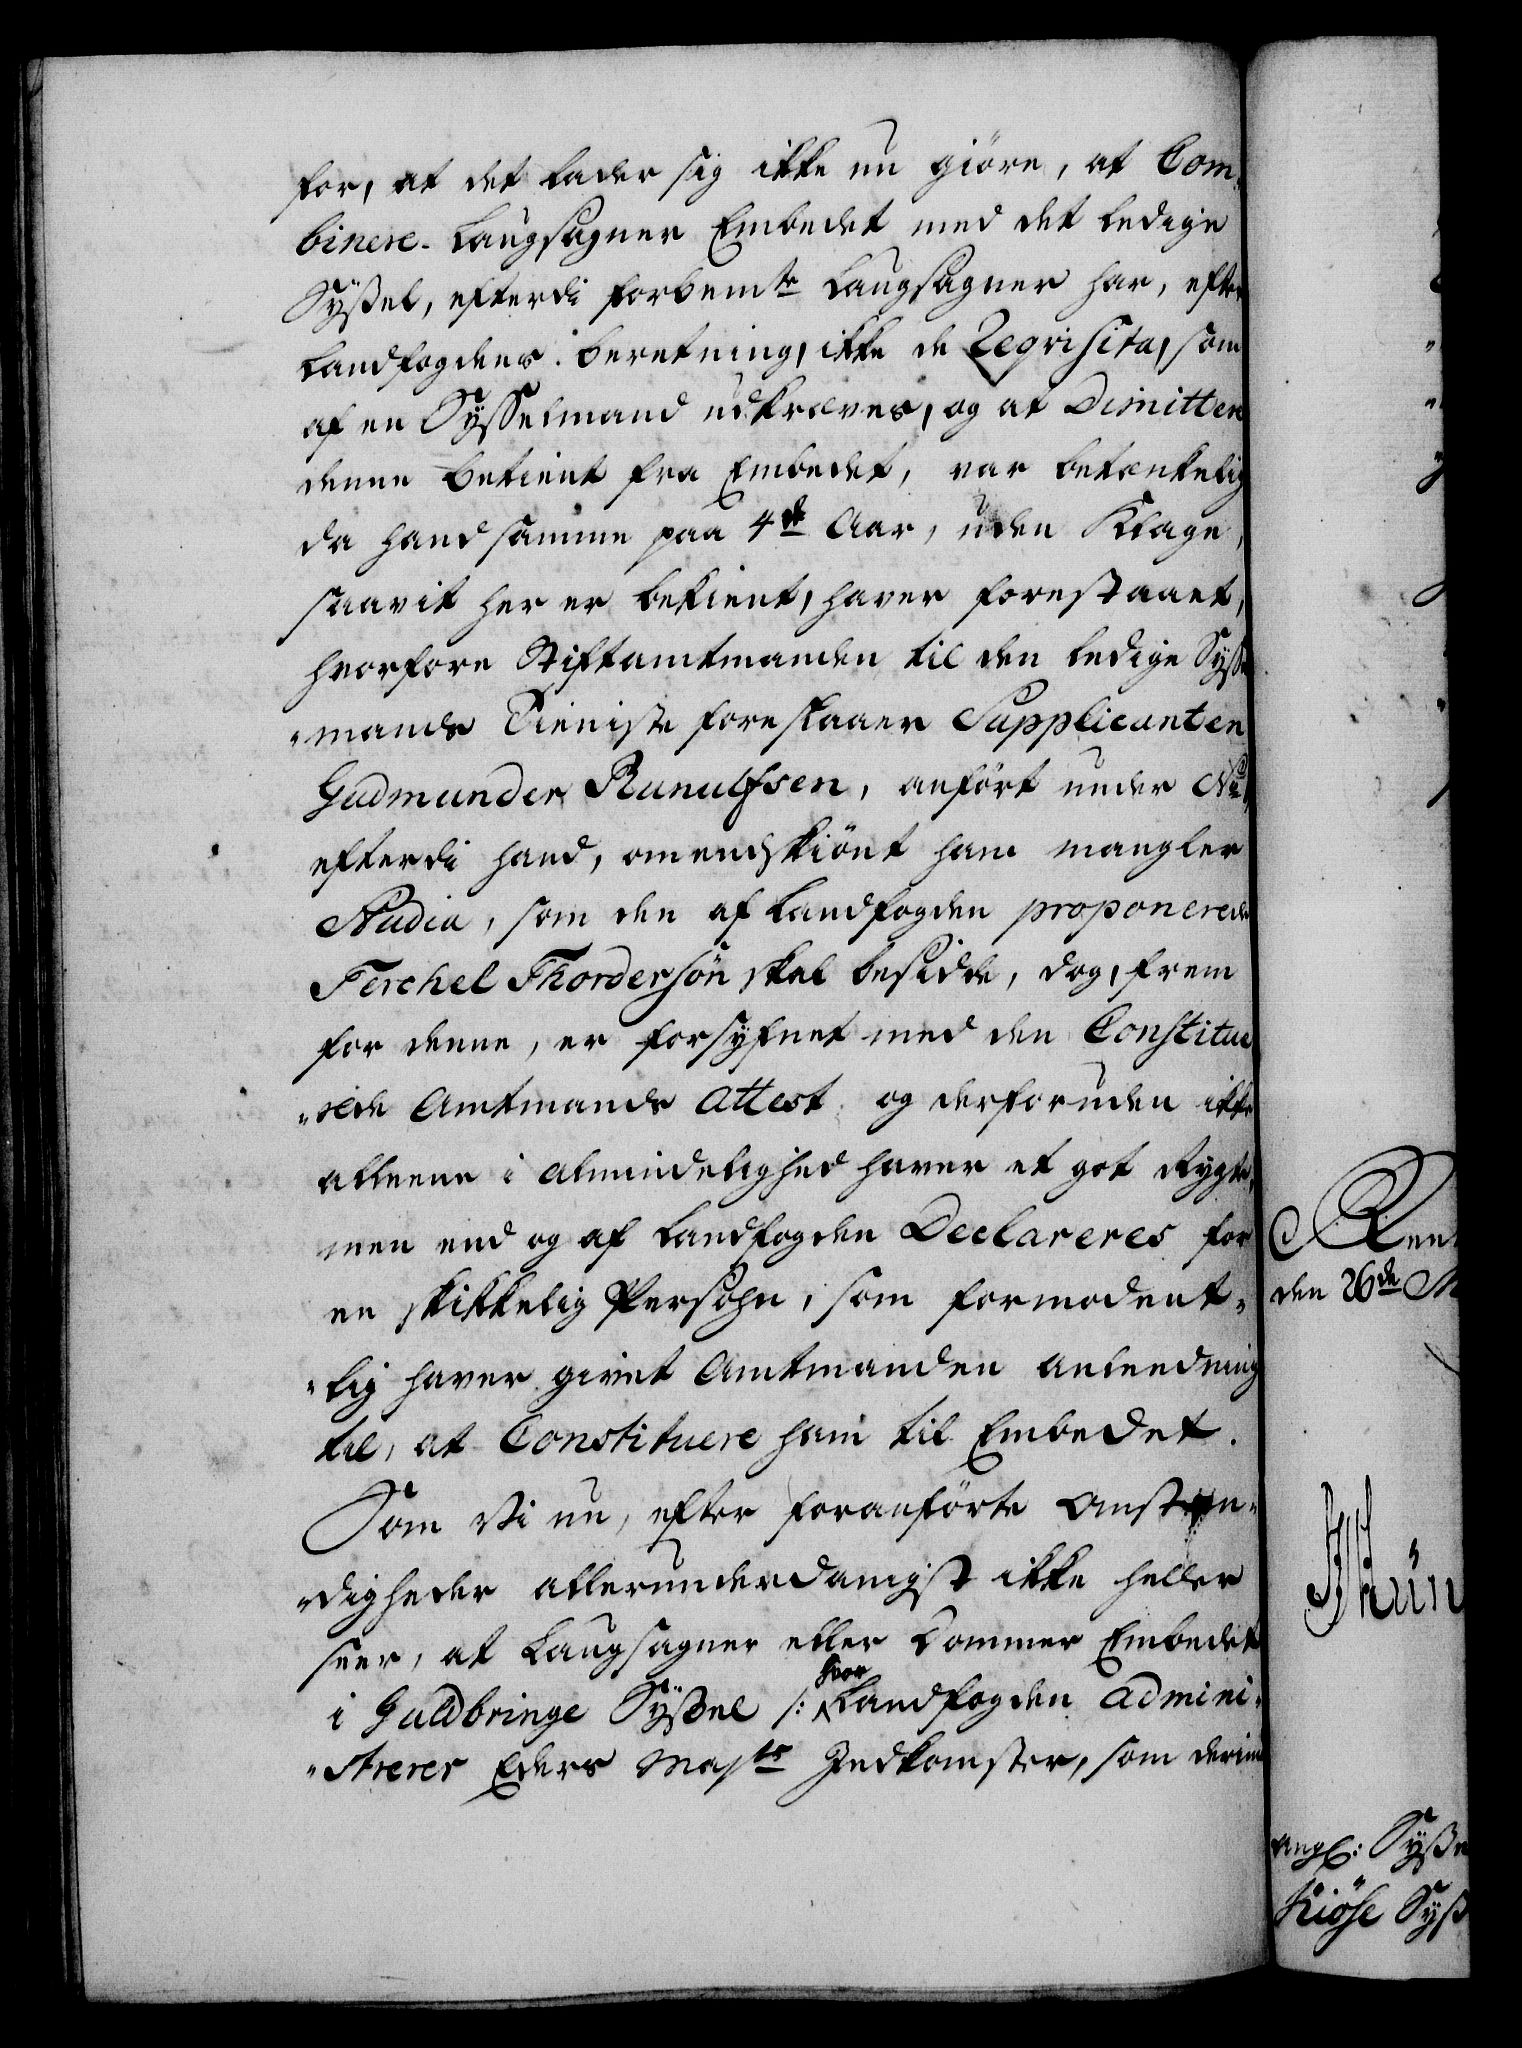 for, at det lader sig ikke nu giöre, at Com¬
binere Laugsagner Embedet med det ledige
Sÿßel, efterdi forbemte Laugsagner har, efter
Landfogdens beretning, ikke de Reqvisita, som
af en Sÿsselmand udkræves, og at Dimittere
denne betient fra Embedet, var betænkelig
da hand samme paa 4de Aar, uden Klage,
saavit her er bekient, haver forestaaet,
hvorfore Stiftamtmanden til den ledige Sÿße
„mands Tieniste foreslaaer Supplicanten
Gudmunder Runulfsen, anfört under No
efterdi hand, omendskiönt ham mangler
Studia, som den af Landfogden proponerede
Terchel Thordersön skal besidde, dog, frem
for denne, er forsÿfnet med den Constitue
„rede Amtmands Attest og desforuden ikke
alleene i almindelighed haver et got Rygte,
men end og af Landfogden Declareres for
en skikkelig Persohn, som formodent„
„lig haver givet Amtmanden anleedning
til, at Constituere ham til Embedet.
Som Vi nu, efter foranförte Omstæn„
„digheder allerunderdanigst ikke heller
seer, at Laugsagner eller Dommer Embedet
i Guldbringe Sÿßel /: hvor Landfogden admini„
„strerer Eders Majts Indkomster, som derimod
Rent
den 26de M
angl: Sÿße
Kiöse Sÿß